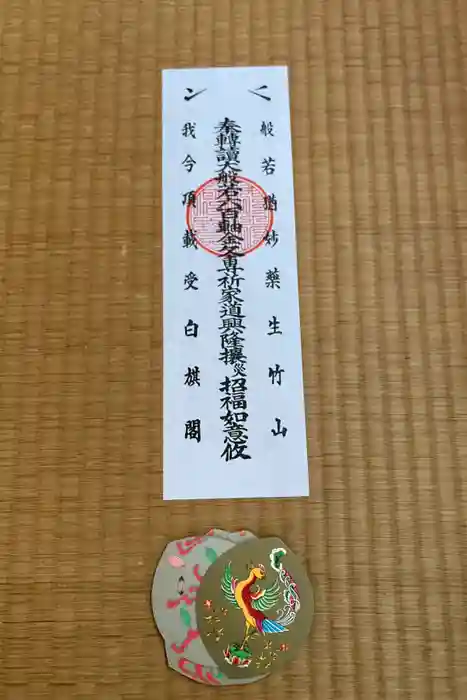 般若猶妙薬生竹山
奉轉讀大般若六百軸金文専祈家道興隆攘災招福如意攸
我今頂戴受白旗閣